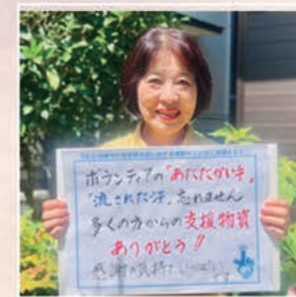 ボランティアの「あたたかい手」
「流された汗」忘れません
多くの方からの支援物資
ありがとう!!
感謝の気持ち